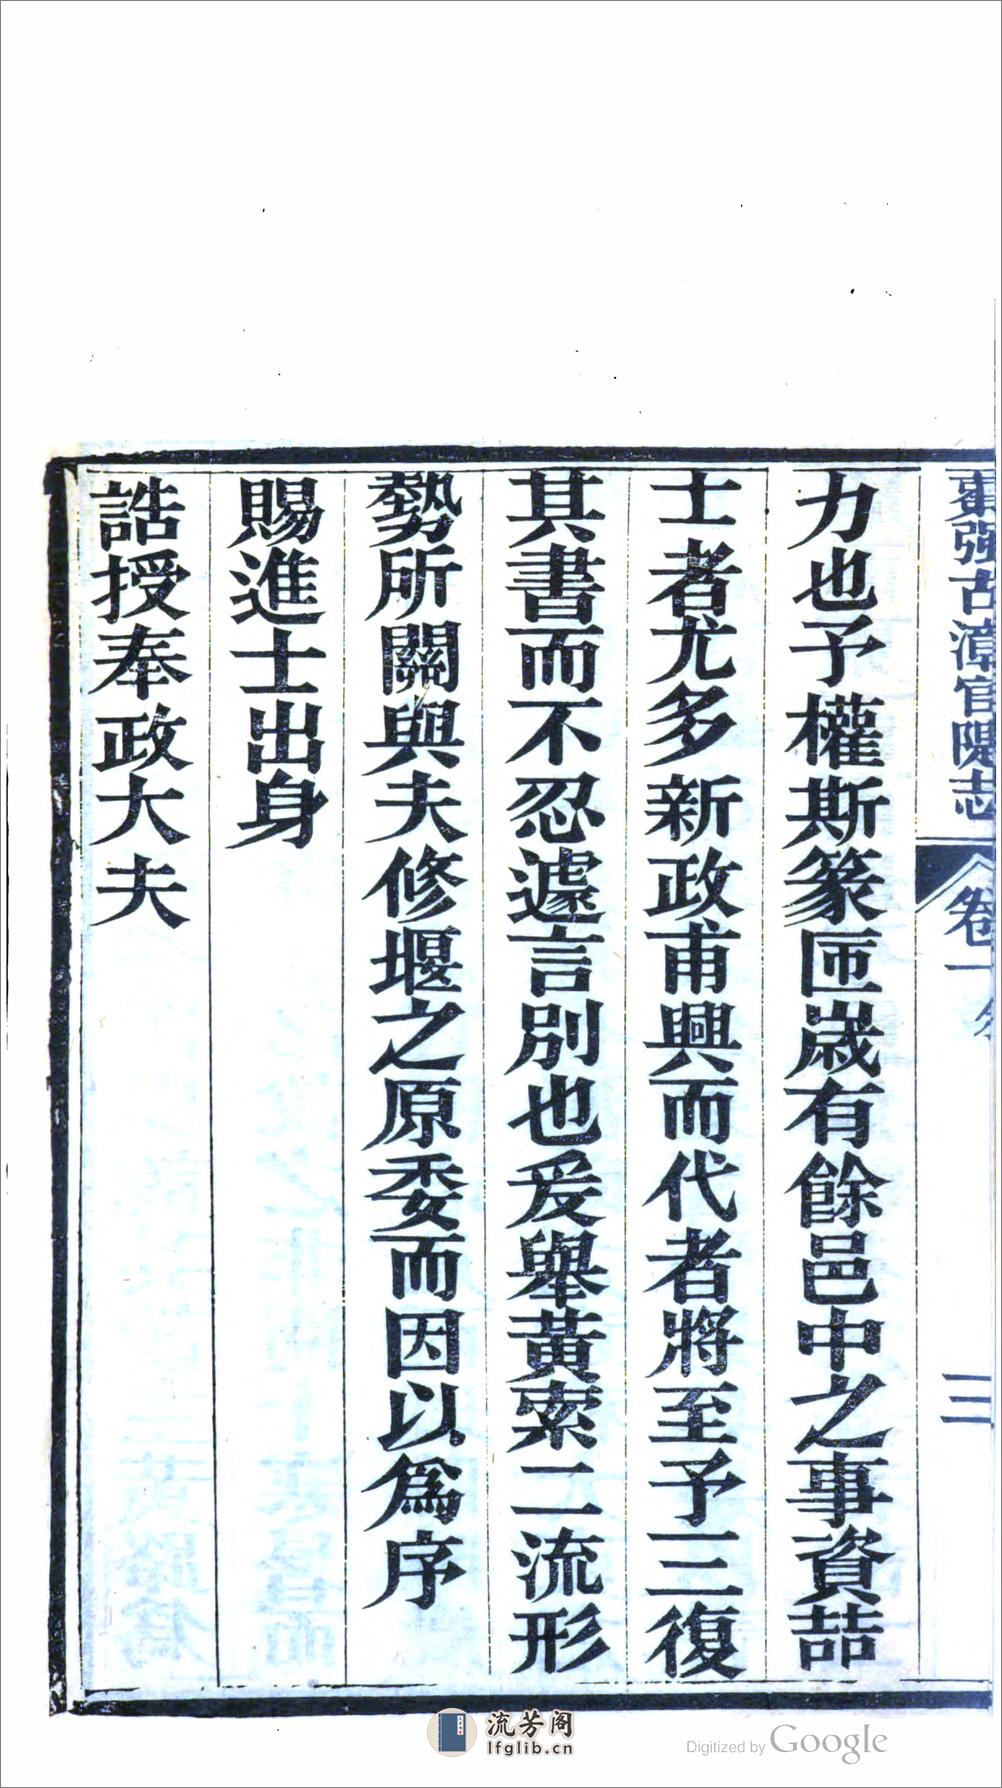 棗强古漳官隄志 卷一 三
力也予權斯篆匝嵗有餘邑中之事資喆
士者尤多新政甫興而代者將至予三復
其書而不忍遽言別也爰舉黄索二流形
勢所關與夫修堰之原委而因以爲序
賜進士出身
誥授奉政大夫
流芳阁
lfglib.cn
Digitized by Google